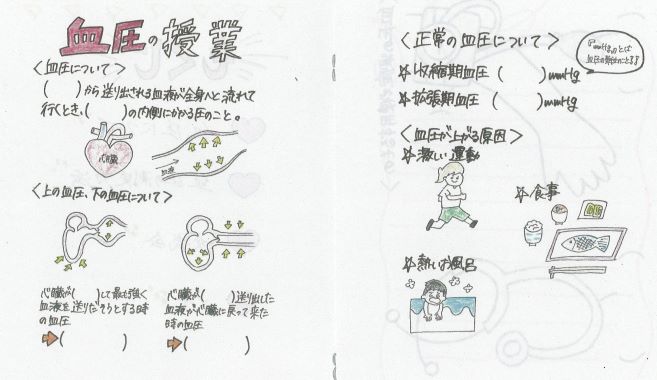 血圧の授業
〈血圧について〉
(　　)から送り出される血液が全身へと流れて
行くとき、(　　)の内側にかかる圧のこと。
心臓
血液
〈上の血圧、下の血圧について〉
心臓が(　　)して最も強く
血液を送りだそうとする時
の血圧
➡(　　)
心臓が(　　)送り出した
血液が心臓に戻って来た
時の血圧
➡(　　)
〈正常の血圧について〉
『mmHg』とは
血圧の単位のこと!!
☆収縮期血圧 (　　)mmHg
☆拡張期血圧 (　　)mmHg
〈血圧が上がる原因〉
☆激しい運動
☆食事
☆熱いお風呂